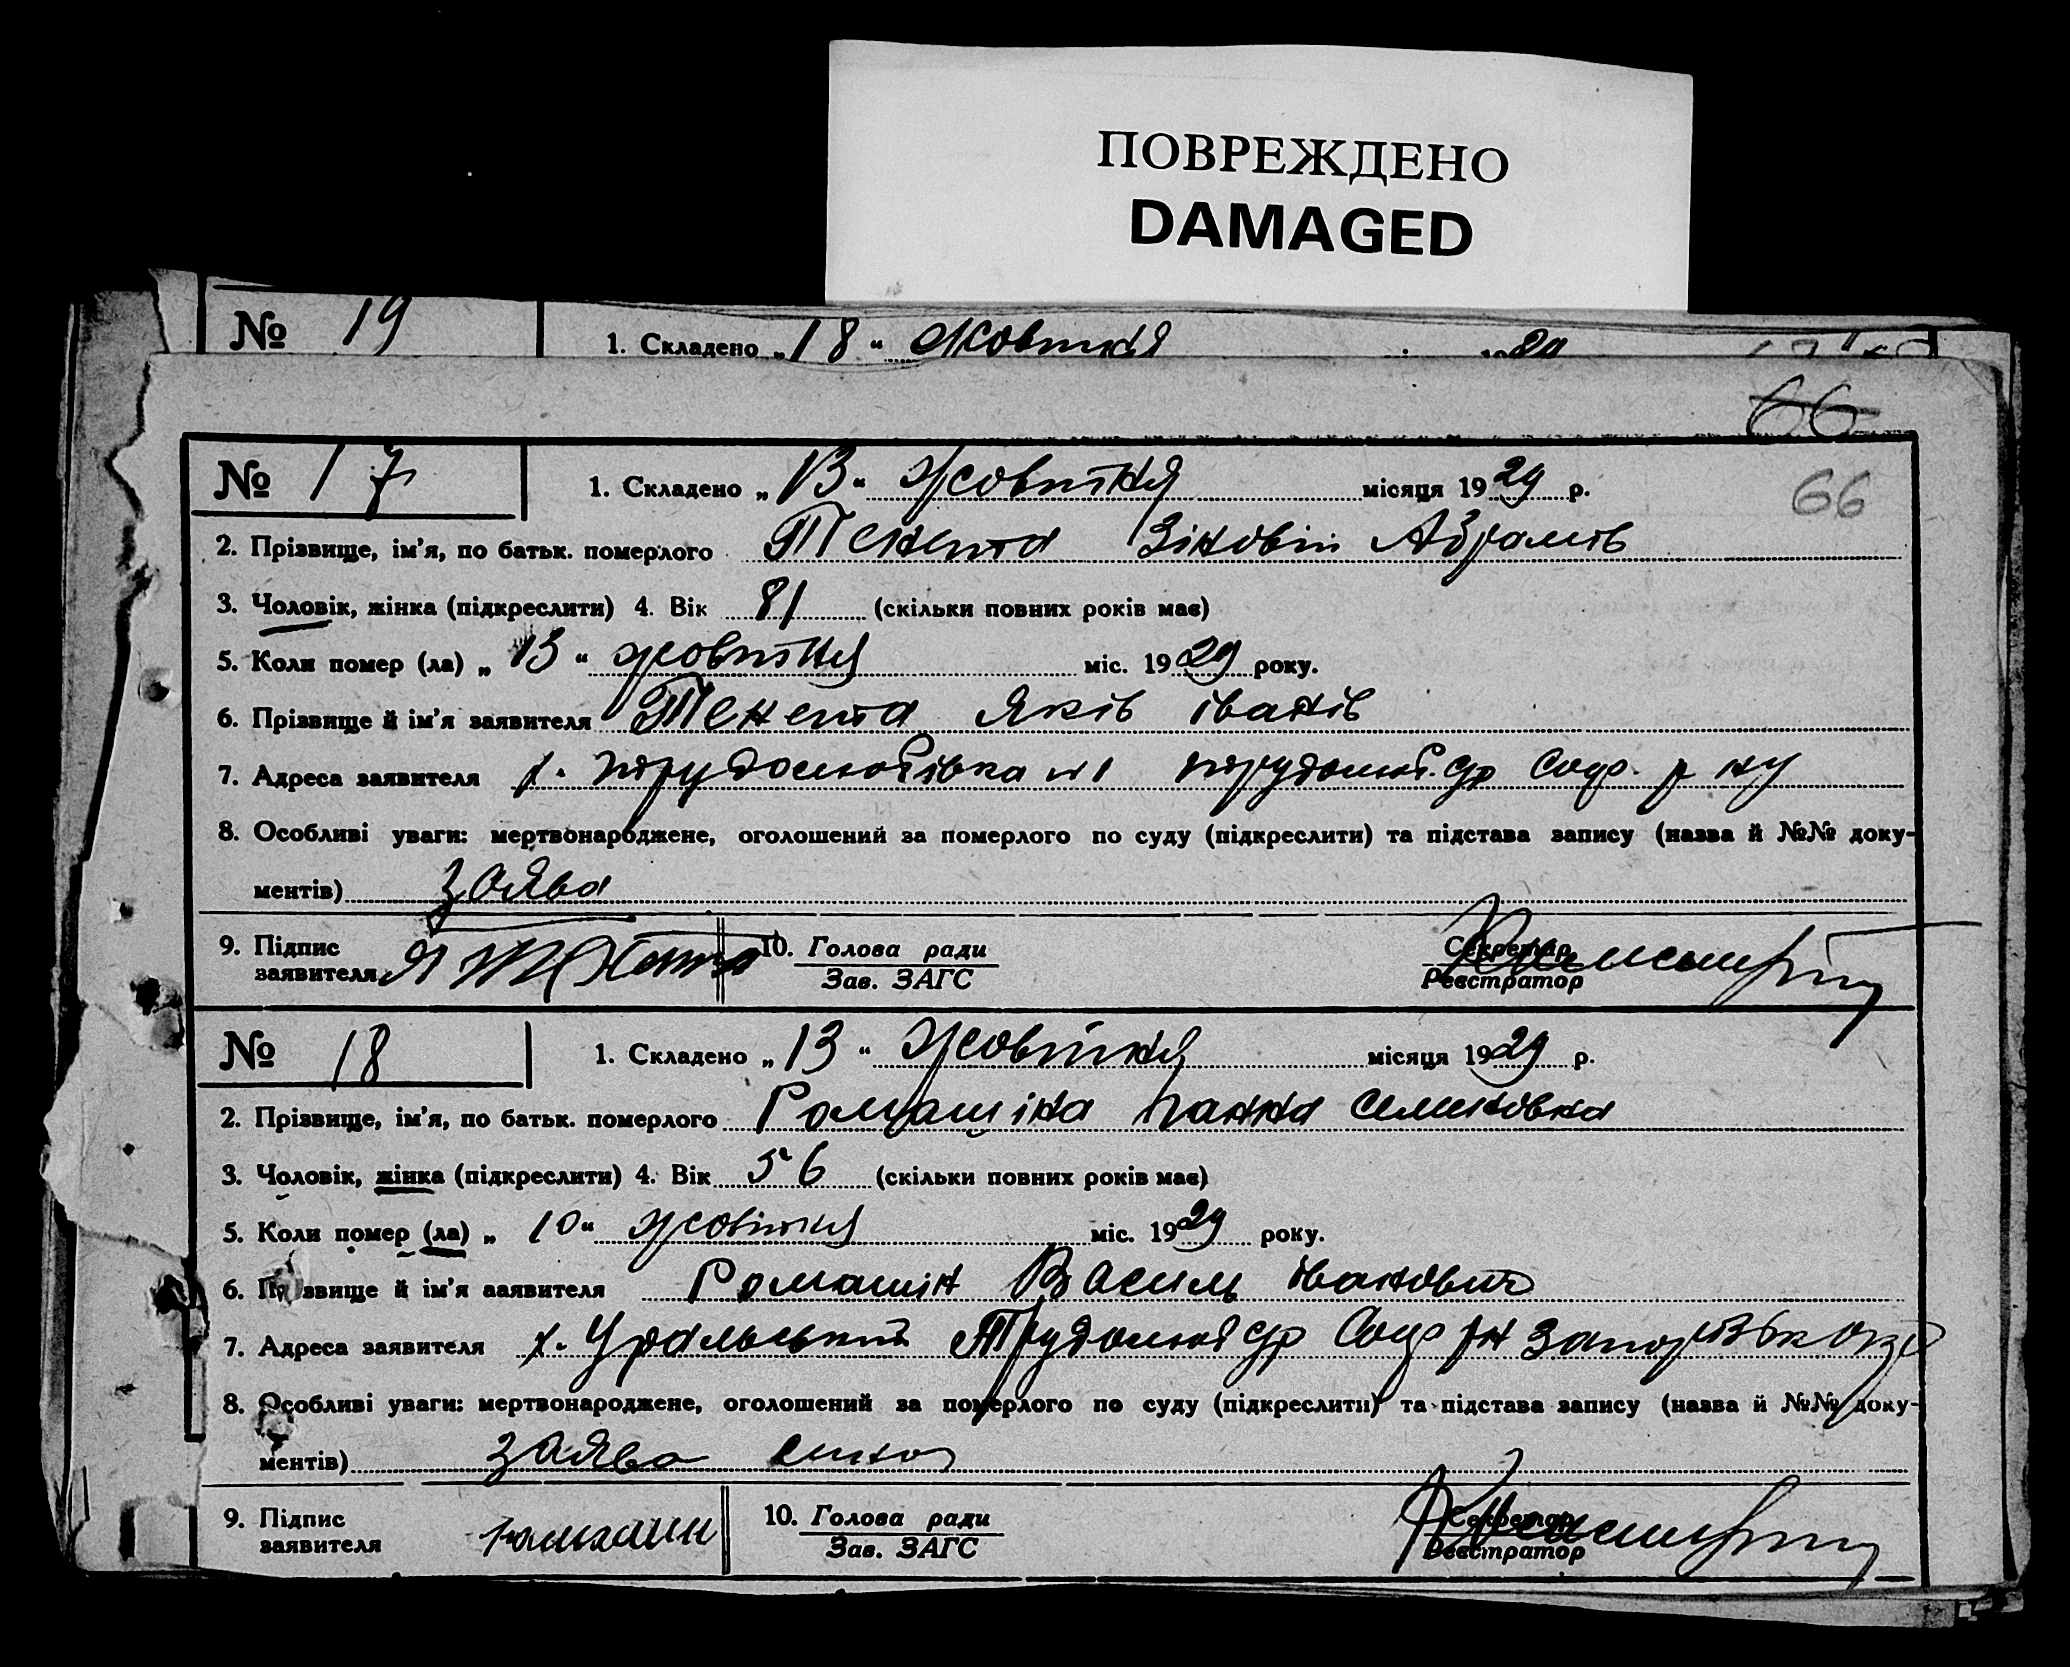 ПОВРЕЖДЕНО
DAMAGED
№ 19 1. Складено „18“ жовтня
66
№ 17 1. Складено „13“ жовтня місяця 1929 р. 66
2. Прізвище, ім’я, по батьк. померлого Тенета Зіновій Абрамів
3. Чоловік, жінка (підкреслити) 4. Вік 81 (скільки повних років має)
5. Коли помер (ла) „13“ жовтня міс. 1929 року.
6. Прізвище й ім’я заявителя Тенета Яків Іванів
7. Адреса заявителя х. Трудолюбівка №1 трудолюб. с/р Соф. р ну
8. Особливі уваги: мертвонароджене, оголошений за померлого по суду (підкреслити) та підстава запису (назва й №№ доку-
ментів) заява
9. Підпис заявителя Я Тенета 10. Голова ради Секретар
Зав. ЗАГС Реєстратор
№ 18 1. Складено „13“ жовтня місяця 1929 р.
2. Прізвище, ім’я, по батьк. померлого Ромашіна Ганна
3. Чоловік, жінка (підкреслити) 4. Вік 56 (скільки повних років має)
5. Коли помер (ла) „10“ жовтня міс. 1929 року.
6. Прізвище й ім’я заявителя Ромашін Василь Іванович
7. Адреса заявителя х. Уральський Трудолюб с/р Соф рн Запорізьк окр
8. Особливі уваги: мертвонароджене, оголошений за померлого по суду (підкреслити) та підстава запису (назва й №№ доку-
ментів) заява сина
9. Підпис заявителя 10. Голова ради Секретар
Зав. ЗАГС Реєстратор